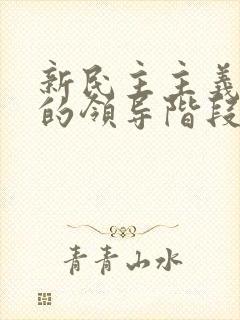 新民主主義
的領导階段
青青山水